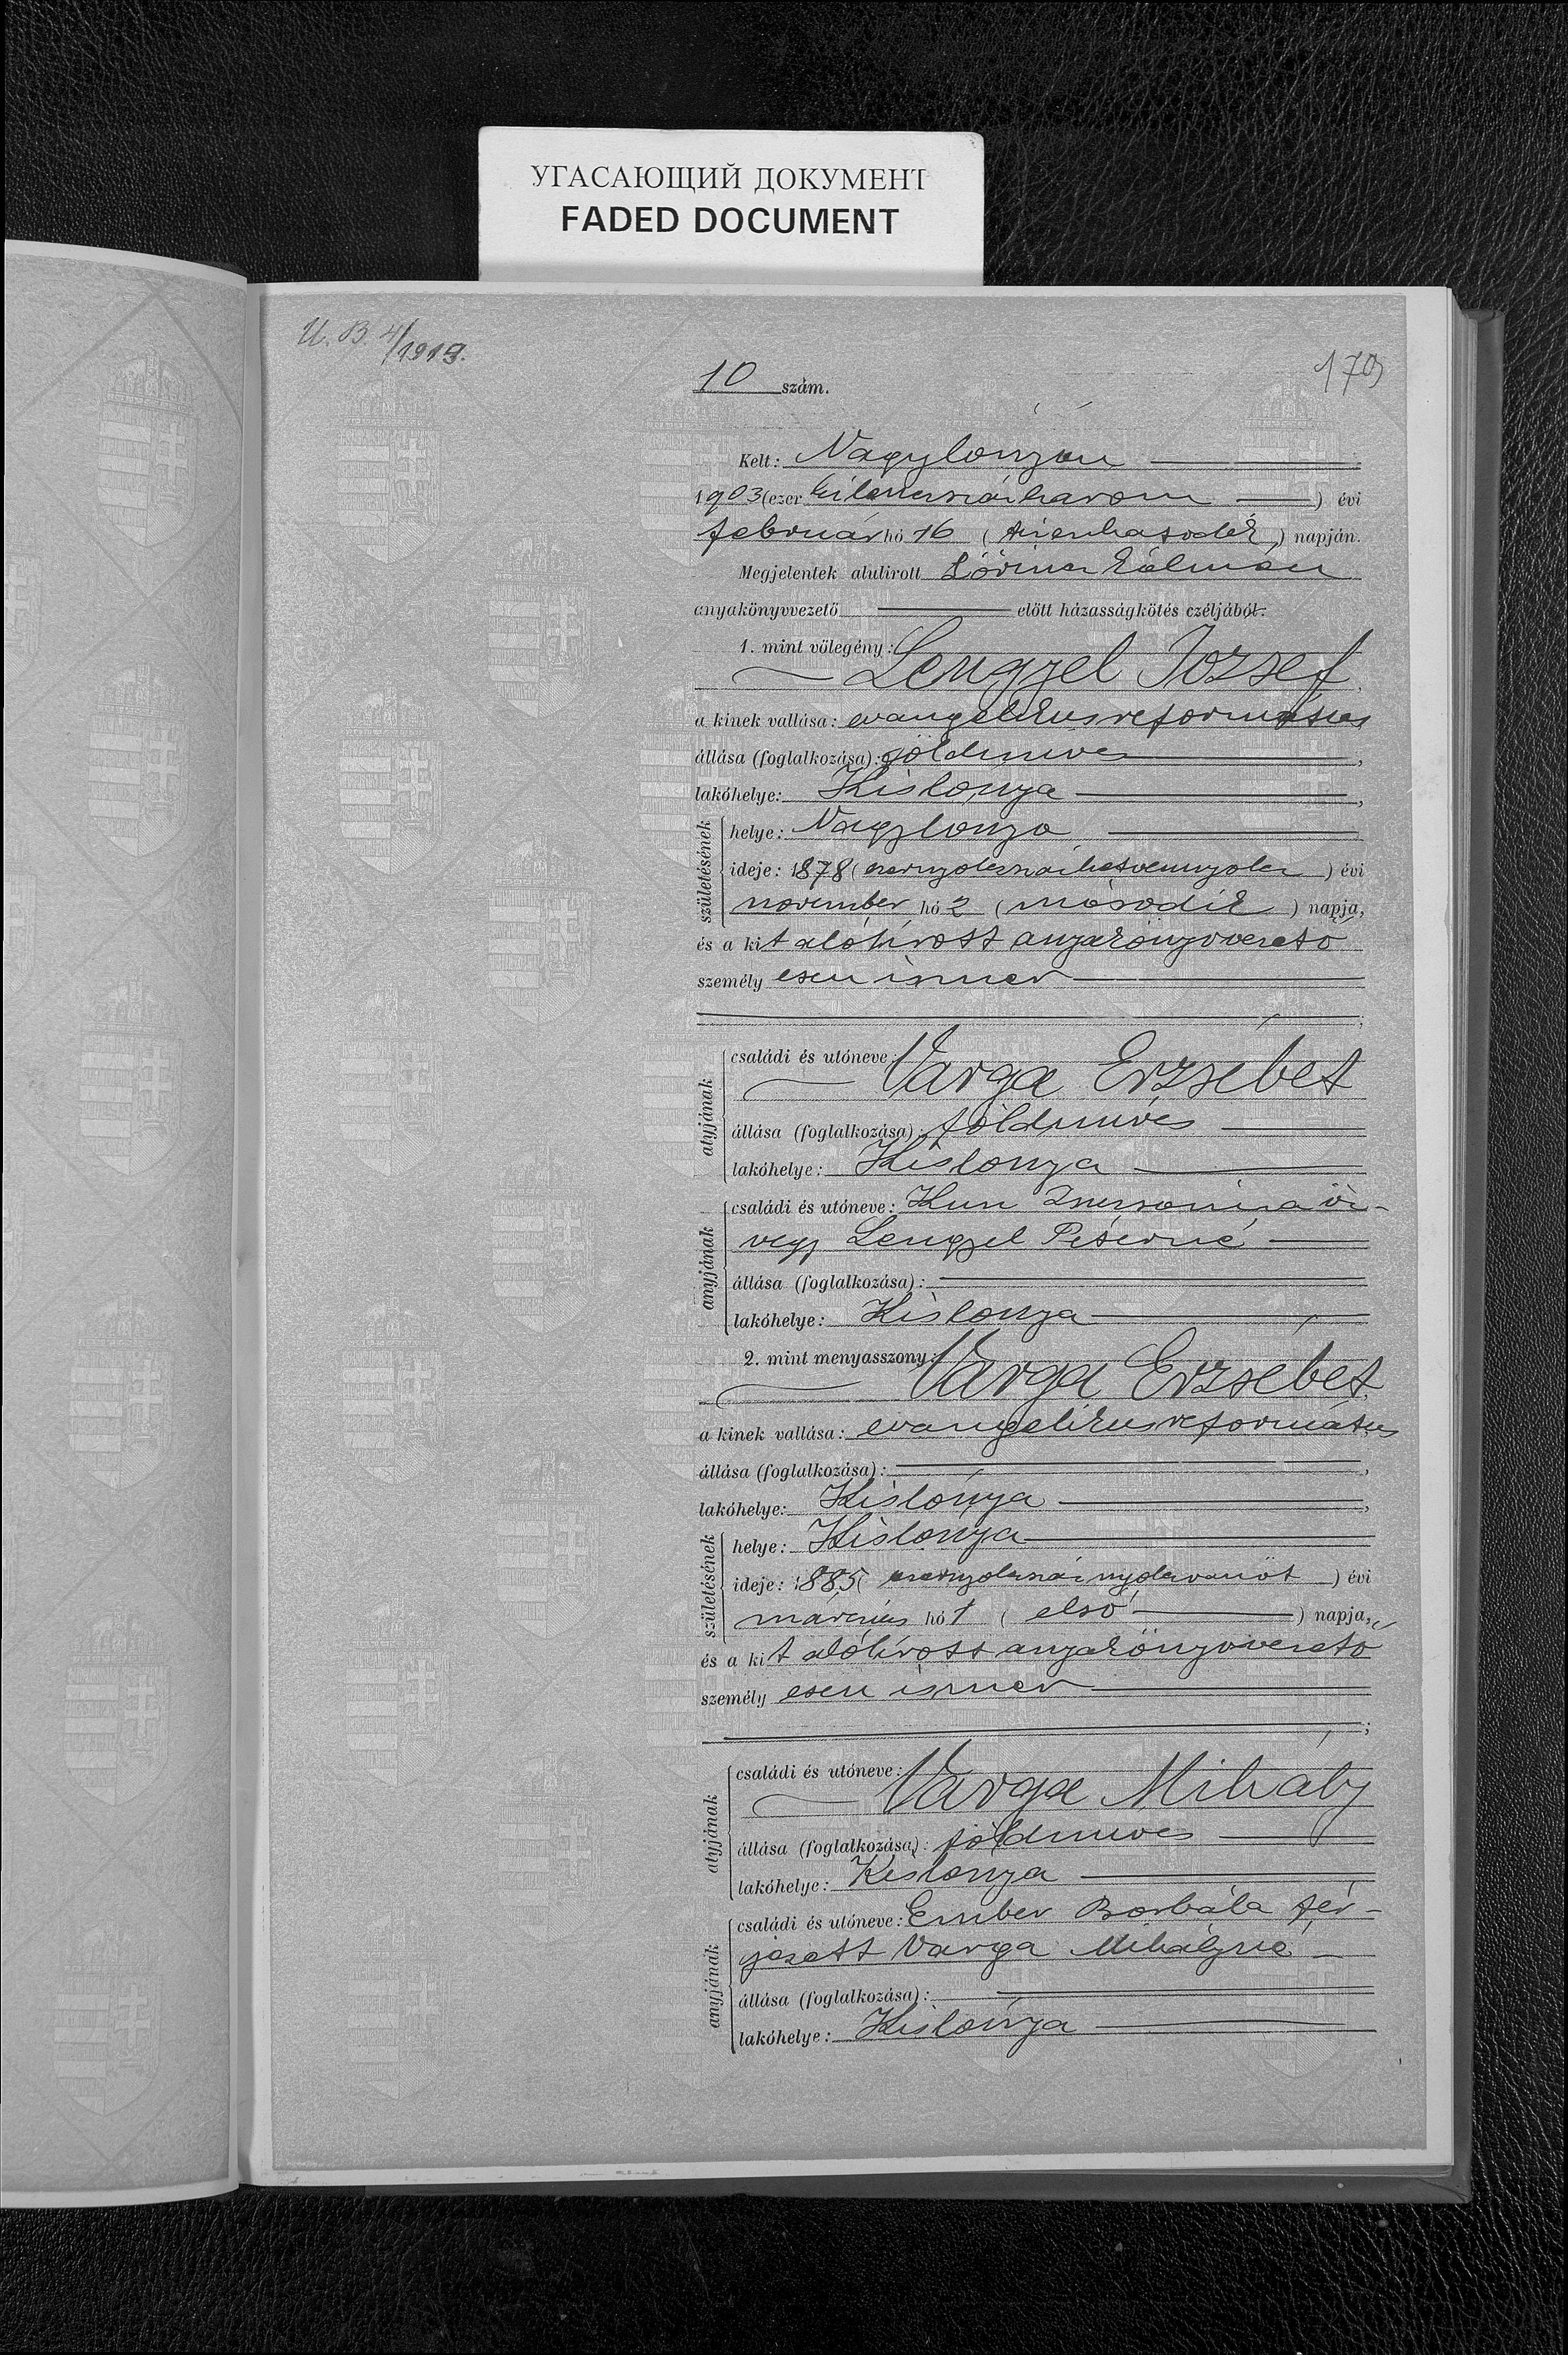 УГАСАЮЩИЙ ДОКУМЕНТ
FADED DOCUMENT
U. B. 4/1919.
179
10 szám.
Kelt: Nagylónyán
1903 (ezer kilenczszázhárom) évi
február hó 16 (tizenhatodik) napján.
Megjelentek alulirott Lőrincz Kálmán
anyakönyvvezető előtt házasságkötés czéljából:
1. mint vőlegény:
Lengyel József
a kinek vallása: evangelikus református
állása (foglalkozása): földmives,
lakóhelye: Kislónya,
születésének
helye: Nagylónya
ideje: 1878 (ezernyolczszázhetvennyolcz) évi
november hó 2 (második) napja,
és a kit alólirott anyakönyvvezető
személyesen ismer
;
atyjának
családi és utóneve:
Varga Erzsébet
állása (foglalkozása): földmives
lakóhelye: Kislonya
anyjának
családi és utóneve: Kun Zsuzsanna öz-
vegy Lengyel Péterné
állása (foglalkozása):
lakóhelye: Kislonya
2. mint menyasszony:
Varga Erzsébet
a kinek vallása: evangelikus református
állása (foglalkozása):,
lakóhelye: Kislónya,
születésének
helye: Kislónya
ideje: 1885 (ezernyolczszáznyolczvanöt) évi
márczius hó 1 (első) napja,
és a kit alólirott anyakönyvvezető
személyesen ismer
;
atyjának
családi és utóneve:
Varga Mihály
állása (foglalkozása): földmives
lakóhelye: Kislonya
anyjának
családi és utóneve: Ember Borbála fér-
jezett Varga Mihályné
állása (foglalkozása):
lakóhelye: Kislónya